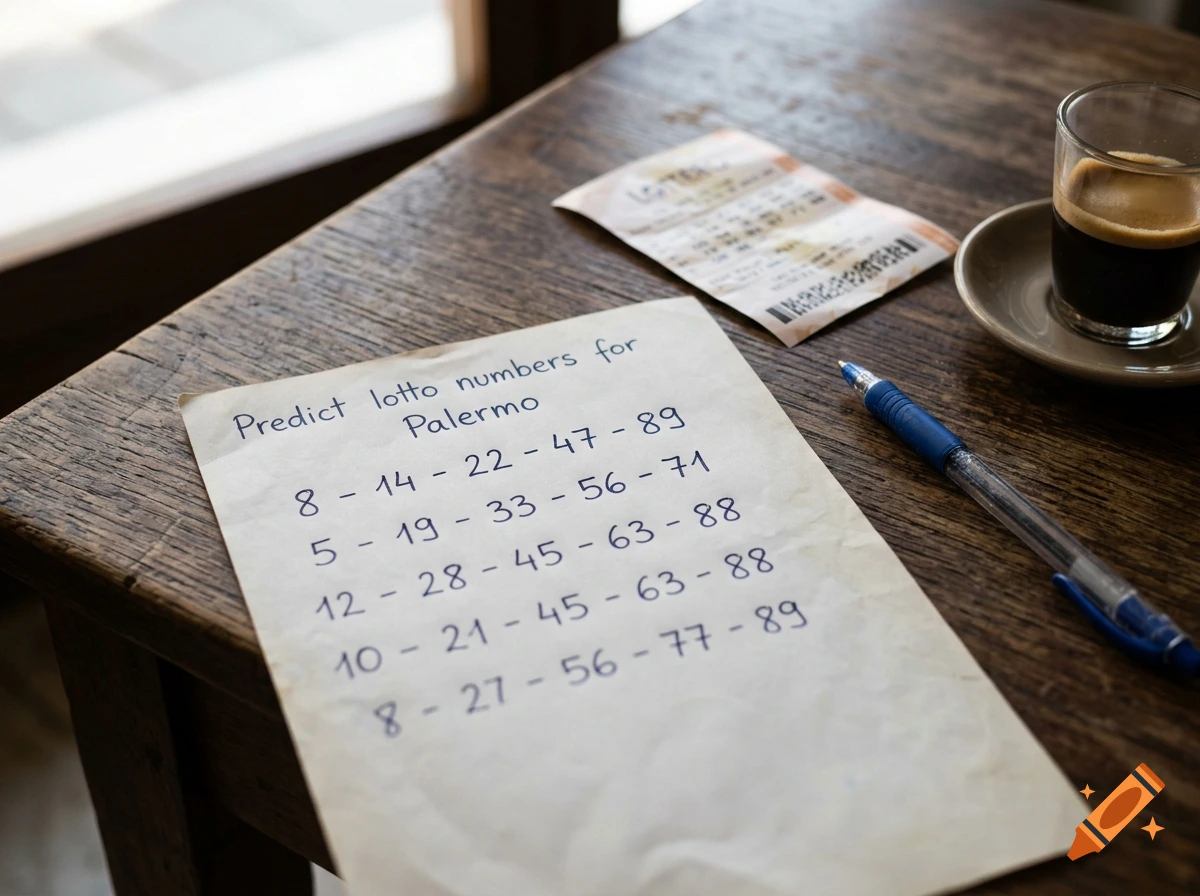 Predict lotto numbers for
Palermo
8 - 14 - 22 - 47 - 89
5 - 19 - 33 - 56 - 71
12 - 28 - 45 - 63 - 88
10 - 21 - 45 - 63 - 88
8 - 27 - 56 - 77 - 89